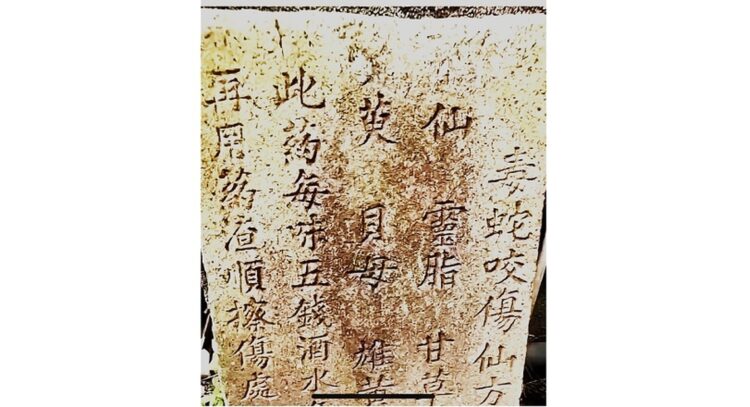 毒蛇咬傷仙方
仙 靈脂 甘草
黄 貝母 雄黄
此药每味五錢酒水
再用药渣順擦傷處